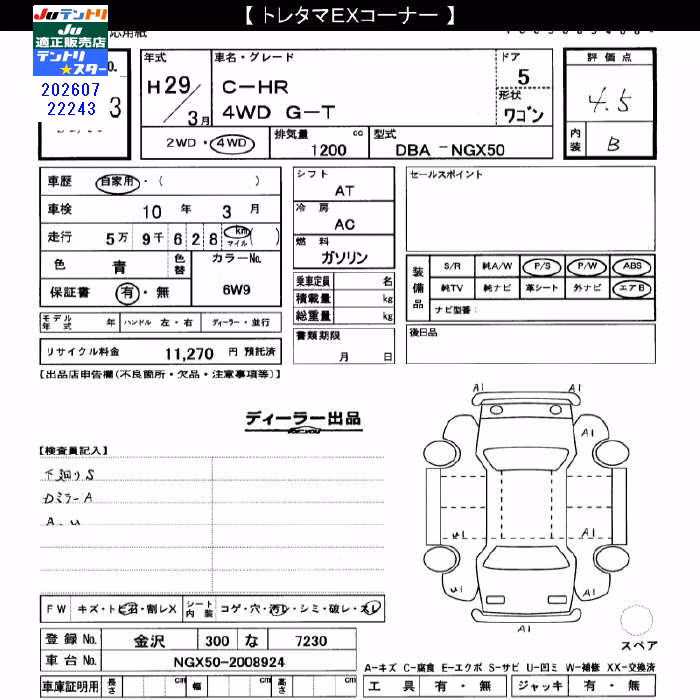 【 トレタマEXコーナー 】
Juテントリ
JU
適正販売店
テントリ
★スター
202607
22243
3
年式
H 29/3月
車名・グレード
C-HR
4WD G-T
ドア
5
形状
ワゴン
評価点
4.5
内装
B
2WD・4WD
排気量
1200 cc
型式
DBA -NGX50
車歴
自家用・( )
車検
10 年 3 月
走行
5万 9千 6 2 8 km マイル ( )
色
青
色替
カラーNo.
6W9
保証書
有・無
シフト
AT
冷房
AC
燃料
ガソリン
乗車定員 名
積載量 kg
総重量 kg
書類期限
月 日
セールスポイント
装備品
S/R 純A/W P/S P/W ABS
純TV 純ナビ 革シート 外ナビ エアB
ナビ型番:
後日品
モデル年式 年 ハンドル 左・右 ディーラー・並行
リサイクル料金 11,270 円 預託済
【出品店申告欄(不良箇所・欠品・注意事項等)】
ディーラー出品
【検査員記入】
下廻りS
DミラーA
A.u
A1 A1
A1
A1
u1
A1
u1
A1
A1
スペア
FW キズ・トビ石・割レX シート内装 コゲ・穴・汚レ・シミ・破レ・スレ
登録No. 金沢 300 な 7230
車台No. NGX50-2008924
車庫証明用 長さ cm 幅 cm 高さ cm
A-キズ C-腐食 E-エクボ S-サビ U-凹ミ W-補修 XX-交換済
工具 有・無 ジャッキ 有・無